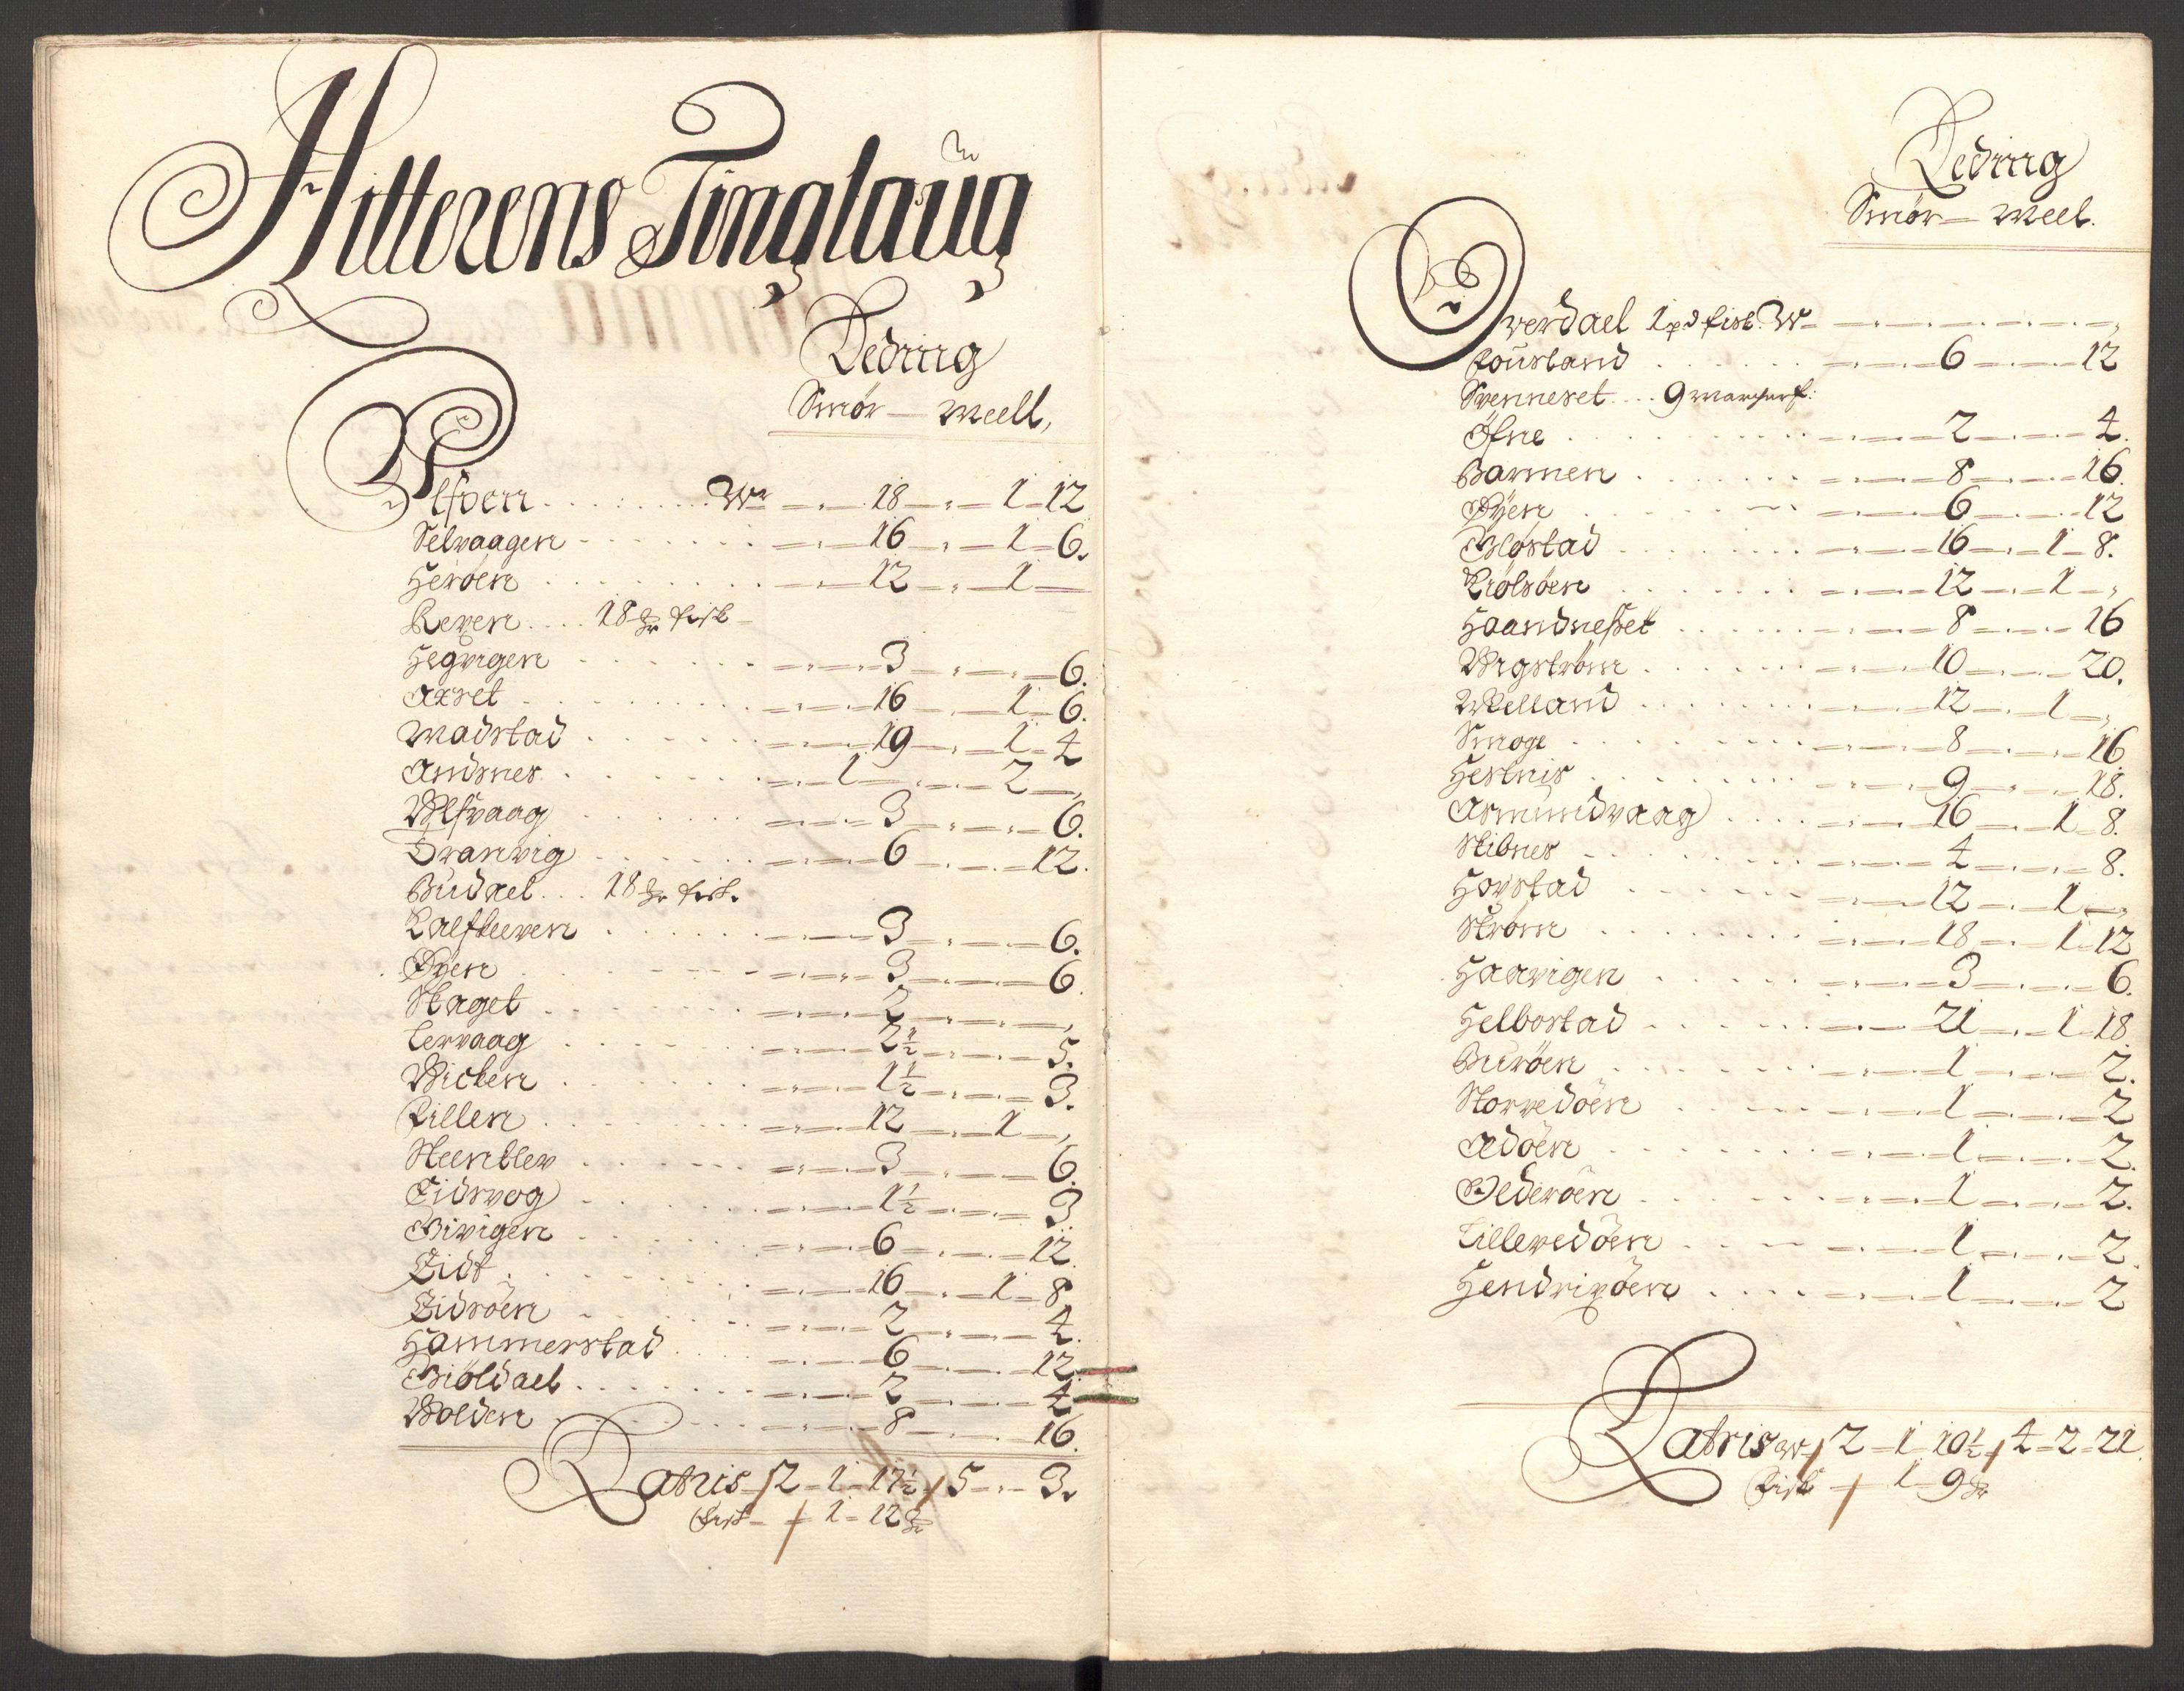 Hitterens Tinglaug
Leding
Smör – Meell,
Ulföen . . . . Wr – 18 – 1 – 12
Selvaagen – 16 – 1 – 6.
Heröen – 12 – 1 –
Reven . . . . 18 fisk –
Hegvigen – 3 – 6.
Axset – 16 – 1 – 6.
Madstad – 19 – 1 – 4
Andsnes – 1 – 2 –
Ulfvaag – 3 – 6.
Tranvig – 6 – 12.
Budael . . . 18 fisk.
Kalfkleeven – 3 – 6.
Øyen – 3 – 6.
Skaget – 2 –
Lervaag – 2½ – 5.
Wicken – 1½ – 3.
Fillen – 12 – 1 –
Steenklev – 3 – 6.
Eidsvog – 1½ – 3.
Givigen – 6 – 12.
Eidt – 16 – 1 – 8
Eidsöen – 2 – 4.
Hammerstad – 6 – 12.
Giöldael – 2 – 4
Wolden – 8 – 16.
Latris – 2 – 1 – 17½ – 5 – – 3.
fisk – 1 – 12
Leding
Smör – Meel.
Overdael 1 pd fisk Wr –
Fousland – 6 – 12
Svenneset . . . 9 marcher f:
Öfne – 2 – 4.
Barmen – 8 – 16.
Øÿen – 6 – 12
Gløstad – 16 – 1 – 8.
Kiölsöen – 12 – 1 –
Haandnesset – 8 – 16
Wigström – 10 – 20.
Melland – 12 – 1 –
Smoge – 8 – 16
Hestnis – 9 – 18.
Asmundvaag – 16 – 1 – 8.
Stibnes – 4 – 8.
Hovstad – 12 – 1 –
Ström – 18 – 1 – 12
Haavigen – 3 – 6.
Helbostad – 21 – 1 – 18.
Buröen – 1 – 2.
Storvedöen – 1 – 2
Adöen – 1 – 2.
Olderöen – 1 – 2.
Lillevedöen – 1 – 2.
Hendrixöen – 1 – 2
Latris Wr 2 – 1 – 10½ 4 – 2 – 21.
Fisk – 1 – 9